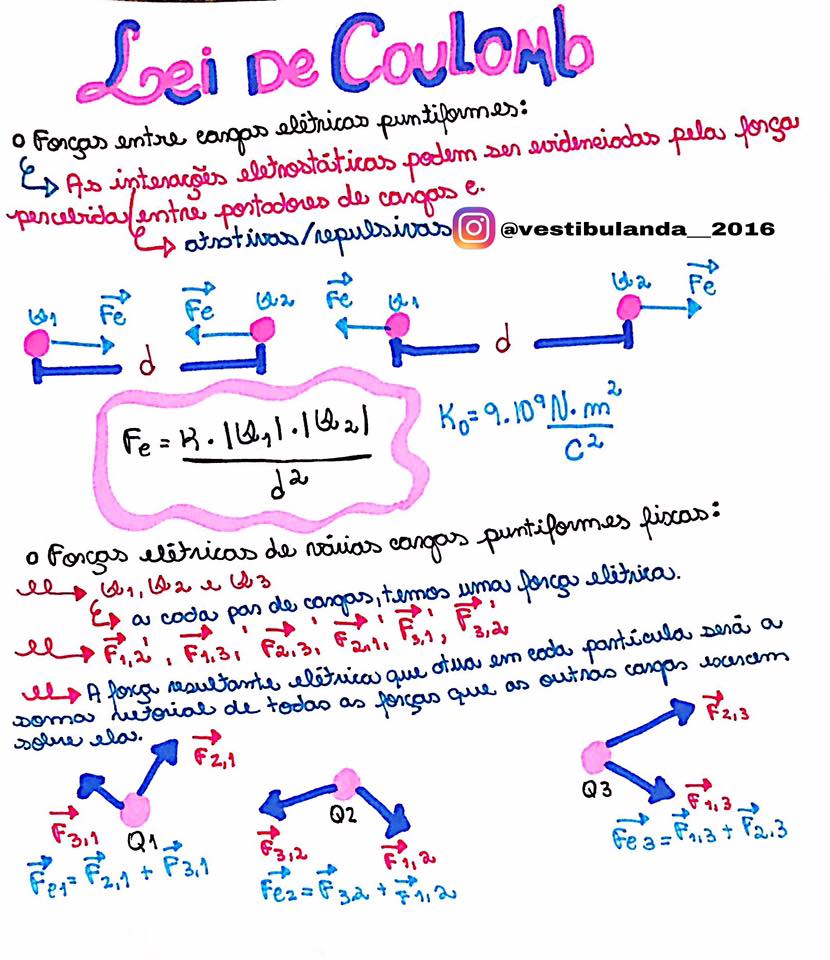 Lei de Coulomb
o Forças entre cargas elétricas puntiformes:
↳ As interações eletrostáticas podem ser evidenciadas pela força
percebida/entre portadores de cargas e.
↳ atrativas/repulsivas @vestibulanda__2016
Q1 Fe Fe Q2 Fe Q1 Q2 Fe
d d
Fe = K . |Q1| . |Q2| / d²
K0 = 9.10⁹ N.m² / C²
o Forças elétricas de várias cargas puntiformes fixas:
→ Q1, Q2 e Q3
↳ a cada par de cargas, temos uma força elétrica.
→ F1,2 , F1,3 , F2,3 , F2,1 , F3,1 , F3,2
→ A força resultante elétrica que atua em cada partícula será a
soma vetorial de todas as forças que as outras cargas exercem
sobre ela.
F2,1
F3,1 Q1
Fe1 = F2,1 + F3,1
Q2
F3,2 F1,2
Fe2 = F3,2 + F1,2
F2,3
Q3 F1,3
Fe3 = F1,3 + F2,3